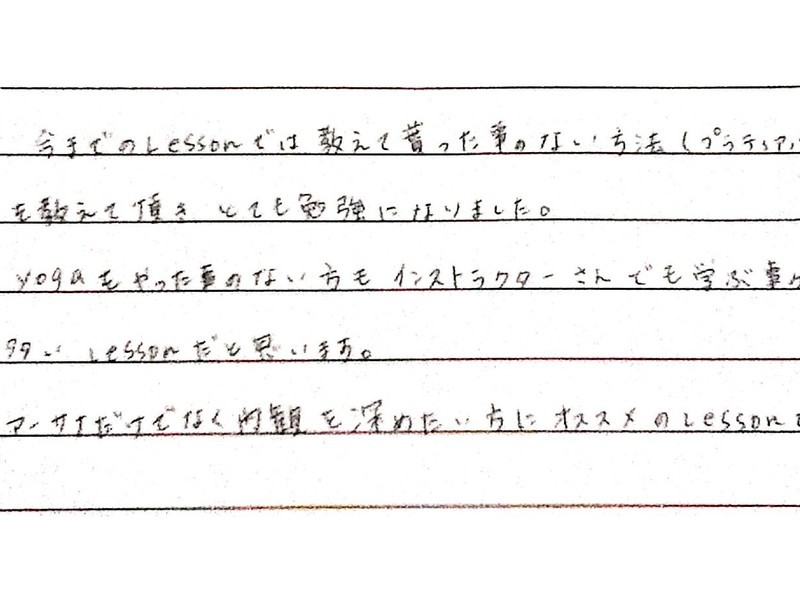 今までのLessonでは教えて貰った事のない方法(プラティアハ
を教えて頂き とても勉強になりました。
yogaをやった事のない方も インストラクターさんでも学ぶ事が
多い Lessonだと思います。
アーサナだけでなく内観を深めたい方に オススメのLessonで